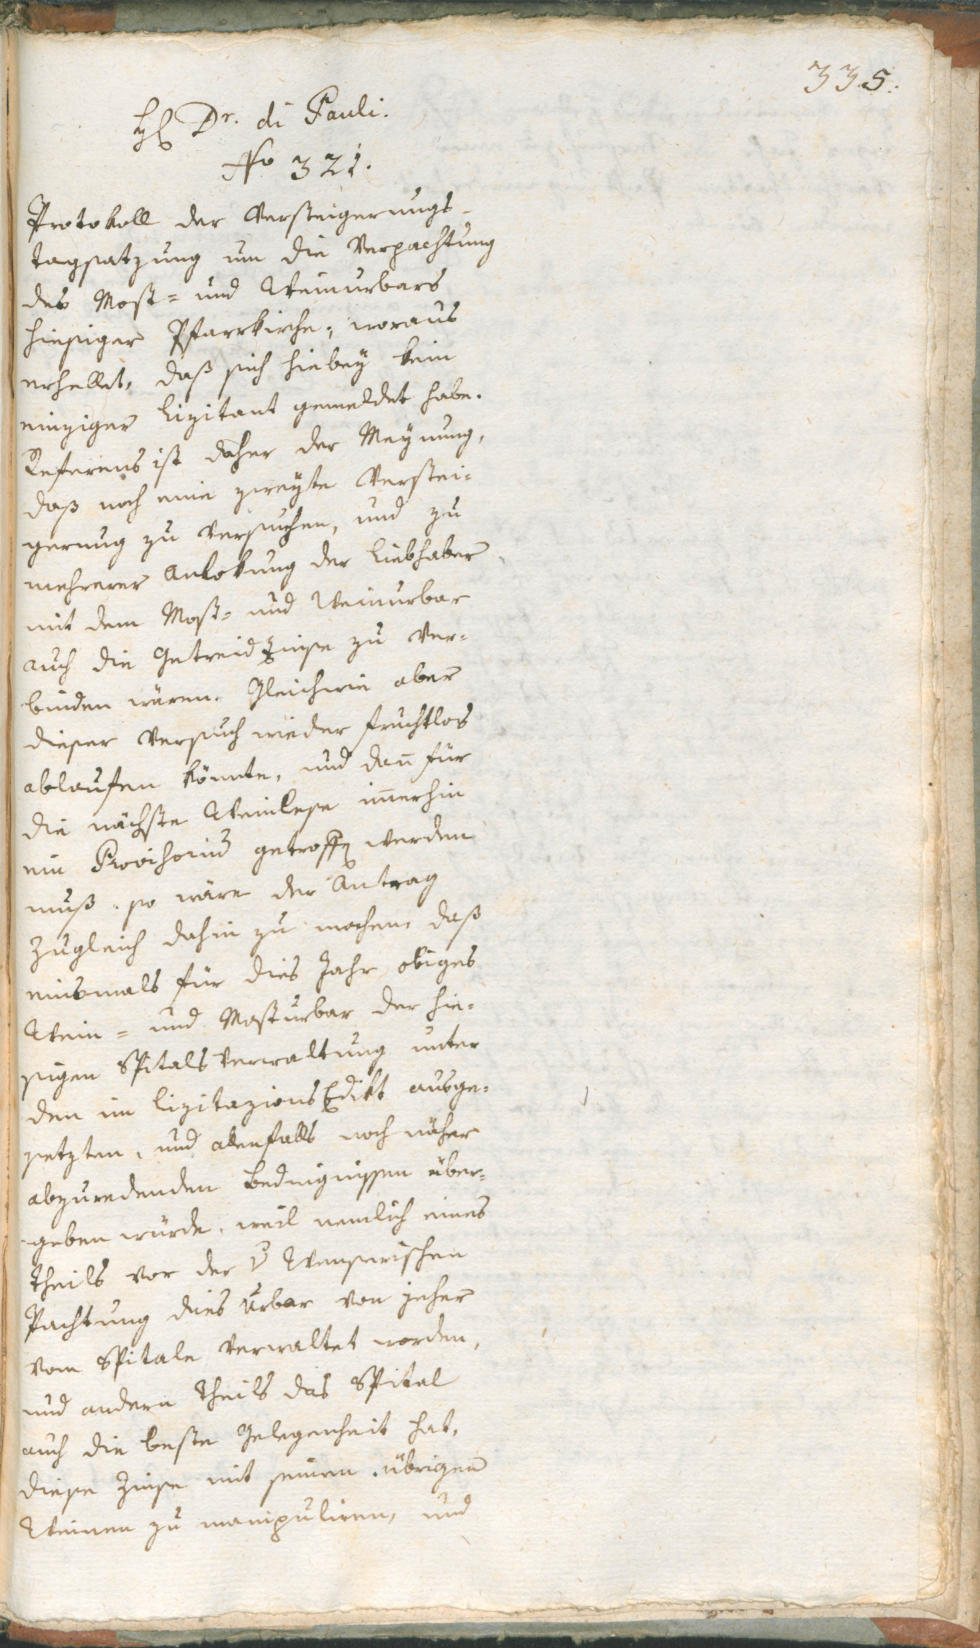 335.
H Dr. di Pauli.
No 321.
Protokoll der Versteigerungs-
tagsatzung um die Verpachtung
des Most= und Weinurbars
hiesiger Pfarrkirche, woraus
erhellet, daß sich hiebey kein
einziger Lizitant gemeldet habe.
Referens ist daher der Meynung,
daß noch eine zweyte Verstei=
gerung zu versuchen, und zu
mehrerer Anlokung der Liebhaber
mit dem Most= und Weinurbar
auch die Getreid Zinse zu ver=
binden wären. Gleichwie aber
dieser Versuch wieder fruchtlos
ablaufen könnte, und dan̄ für
die nächste Weinlese im̄erhin
ein Provisoriu̅ getroffen werden
muß, so wäre der Antrag
zugleich dahin zu machen, daß
einsmals für dies Jahr obiges
Wein= und Mosturbar der hie=
sigen Spitals Verwaltung unter
den im Lizitazions Edikt ausge=
setzten, und allenfalls noch näher
abzuredenden Bedingnissen über=
geben würde, weil nemlich eines
Theils vor der v
Pachtung dies Urbar von jeher
vom Spitale verwaltet worden,
und andern Theils das Spital
auch die beste Gelegenheit hat,
diese Zinse mit seinen übrigen
Weinen zu manipuliren, und